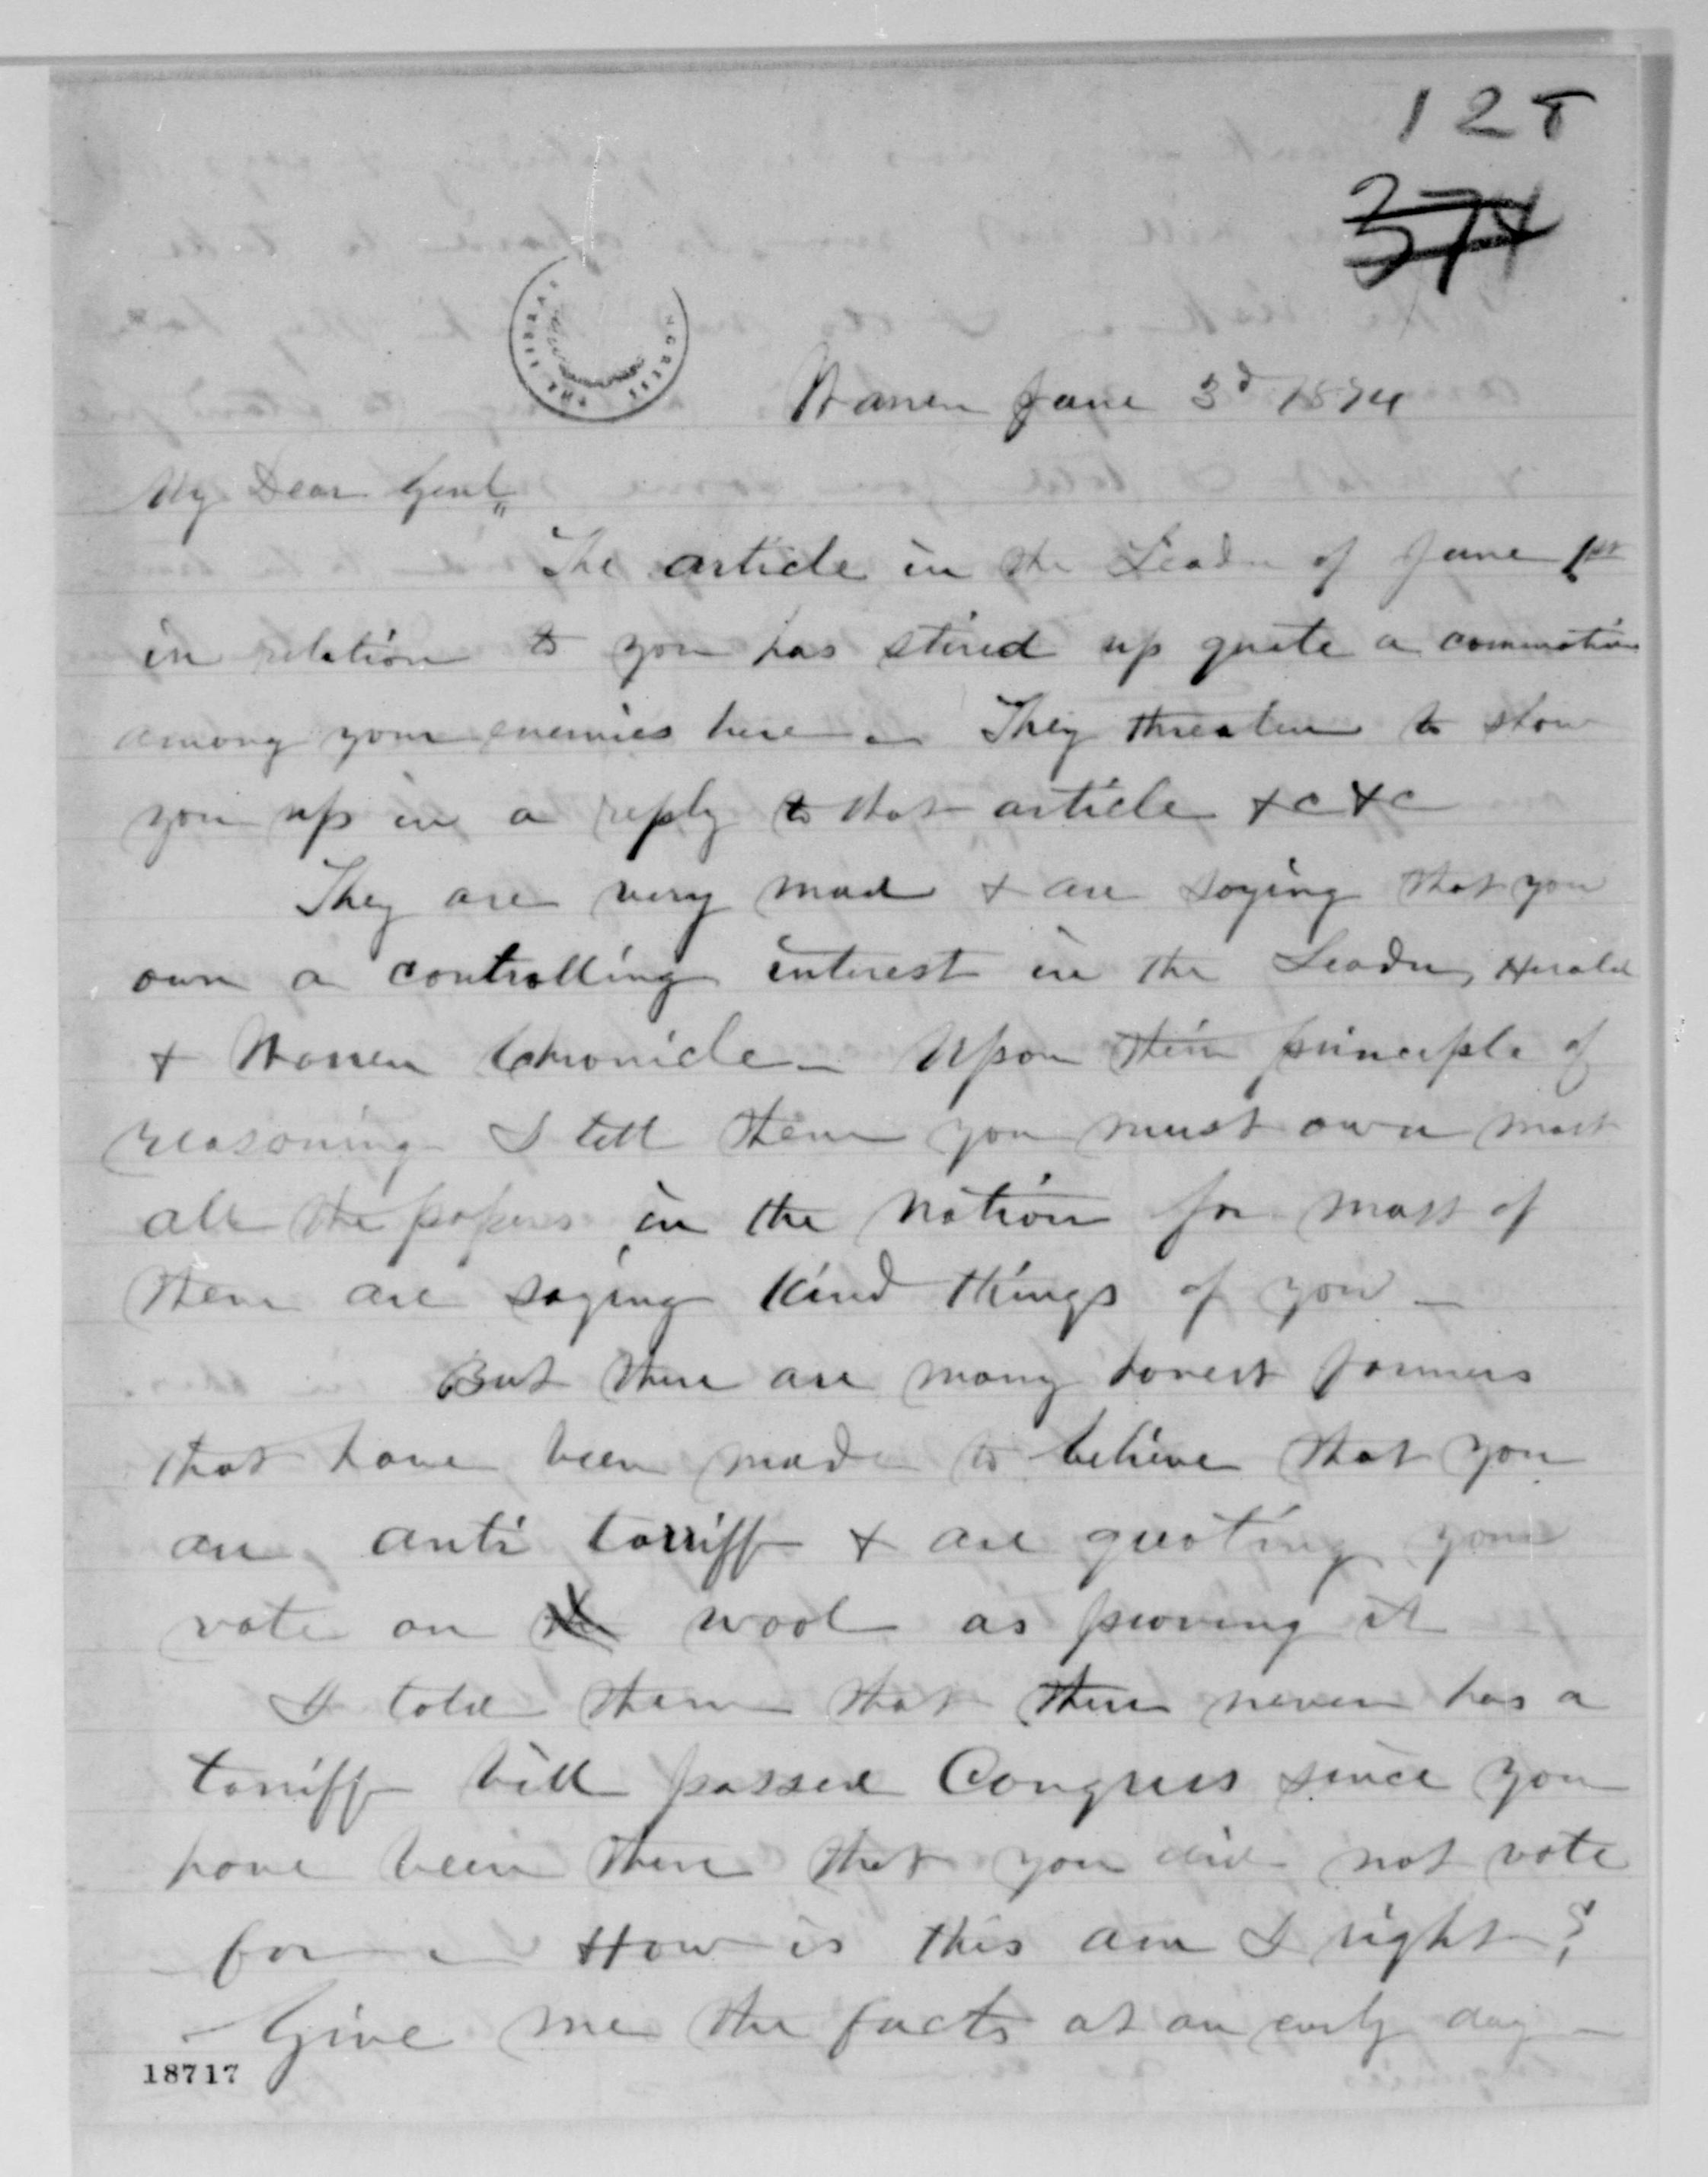 128
374
Warren June 3d 1874
My Dear Genl
The article in the Leader of June 1st
in relation to you has stired up quite a commotion
among your enemies here - They threaten to show
you up in a reply to that article &c &c
They are very mad & are saying that you
own a controlling interest in the Leader, Herald
& Warren Chronicle - Upon their principle of
reasoning I tell them you must own most
all the papers in the Nation for most of
them are saying kind things of you -
But there are many honest farmers
that have been made to believe that you
are anti tarriff & are quoting your
vote on the wool as proving it
I told them that there never has a
tarriff bill passed Congress since you
have been there that you did not vote
for - How is this am I right?
Give me the facts at an early day -
18717